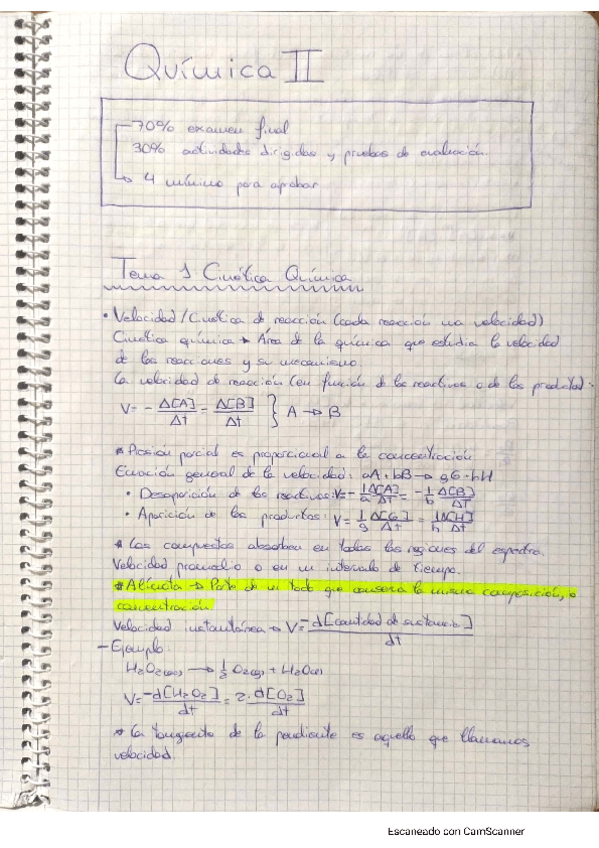 Química II
70% examen final
30% actividades dirigidas y pruebas de evaluación.
4 mínimo para aprobar
Tema 1 Cinética Química
• Velocidad/Cinética de reacción (cada reacción una velocidad)
Cinética química → Área de la química que estudia la velocidad
de las reacciones y su mecanismo.
La velocidad de reacción (en función de los reactivos o de los productos):
V = - Δ[A]/Δt = Δ[B]/Δt } A → B
* Presión parcial es proporcional a la concentración
Ecuación general de la velocidad: aA + bB → gG + hH
• Desaparición de los reactivos: V = - 1/a Δ[A]/Δt = - 1/b Δ[B]/ΔT
• Aparición de los productos: V = 1/g Δ[G]/Δt = 1/h Δ[H]/ΔT
* Los compuestos absorben en todas las regiones del espectro.
Velocidad promedio o en un intervalo de tiempo.
* Alícuota → Parte de un todo que conserva la misma composición, o
concentración
Velocidad instantánea → V = -d[cantidad de sustancia]/dt
- Ejemplo:
H2O2(ac) → 1/2 O2(g) + H2O(l)
V = -d[H2O2]/dt = 2 · d[O2]/dt
* La tangente de la pendiente es aquello que llamamos
velocidad.
Escaneado con CamScanner